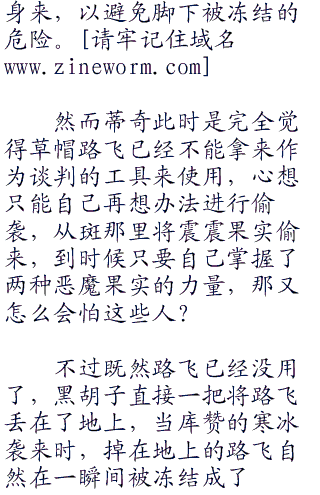 身来，以避免脚下被冻结的
危险。[请牢记住域名
www.zineworm.com]
然而蒂奇此时是完全觉
得草帽路飞已经不能拿来作
为谈判的工具来使用，心想
只能自己再想办法进行偷
袭，从斑那里将震震果实偷
来，到时候只要自己掌握了
两种恶魔果实的力量，那又
怎么会怕这些人？
不过既然路飞已经没用
了，黑胡子直接一把将路飞
丢在了地上，当库赞的寒冰
袭来时，掉在地上的路飞自
然在一瞬间被冻结成了